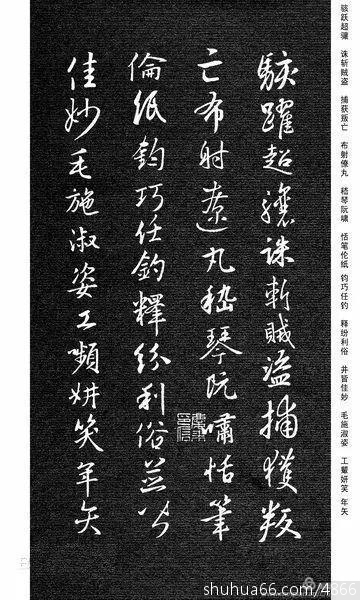 骇跃超骧 诛斩贼盗 捕获叛亡 布射僚丸 嵇琴阮啸 恬笔伦纸 钧巧任钓 释纷利俗 并皆佳妙 毛施淑姿 工颦妍笑 年矢
駭躍超驤誅斬賊盜捕獲叛
亡布射遼丸嵇琴阮嘯恬筆
倫紙鈞巧任釣釋紛利俗並皆
佳妙毛施淑姿工嚬妍笑年矢
shuhua66.com/4866